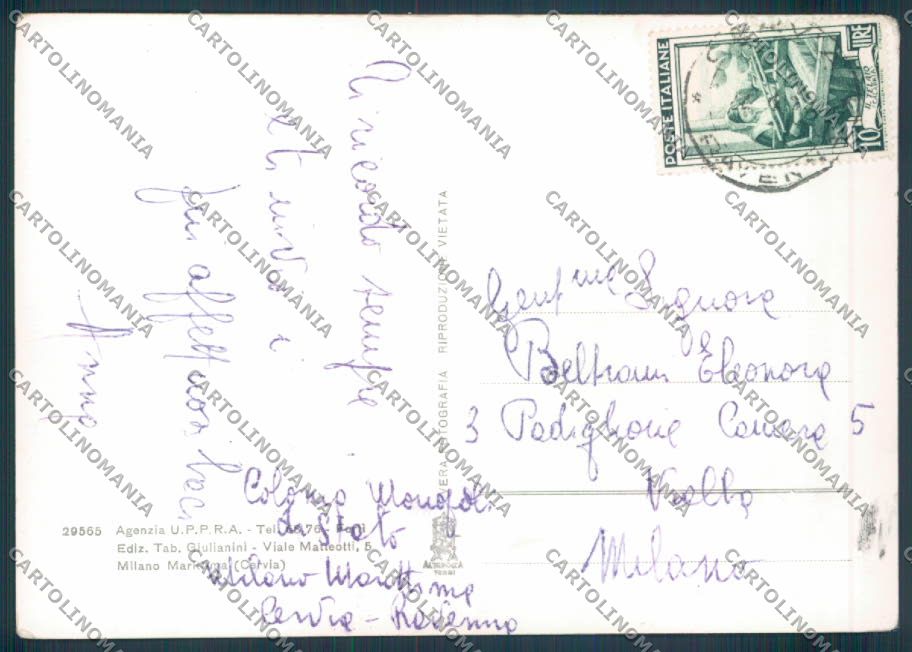 Ti ricordo sempre
e ti invio i
più affettuosi baci
Anna
Colonia Monopoli
di Stato
Milano Marittima
Cervia - Ravenna
VERA FOTOGRAFIA RIPRODUZIONE VIETATA
29565 Agenzia U.P.P.R.A. - Tel. - Forlì
Ediz. Tab. Giulianini - Viale Matteotti, 5
Milano Marittima (Cervia)
POSTE ITALIANE
LIRE
10
Gent.me Signora
Beltrami Eleonora
3 Padiglione Camera 5
Vialba
Milano
CARTOLINOMANIA